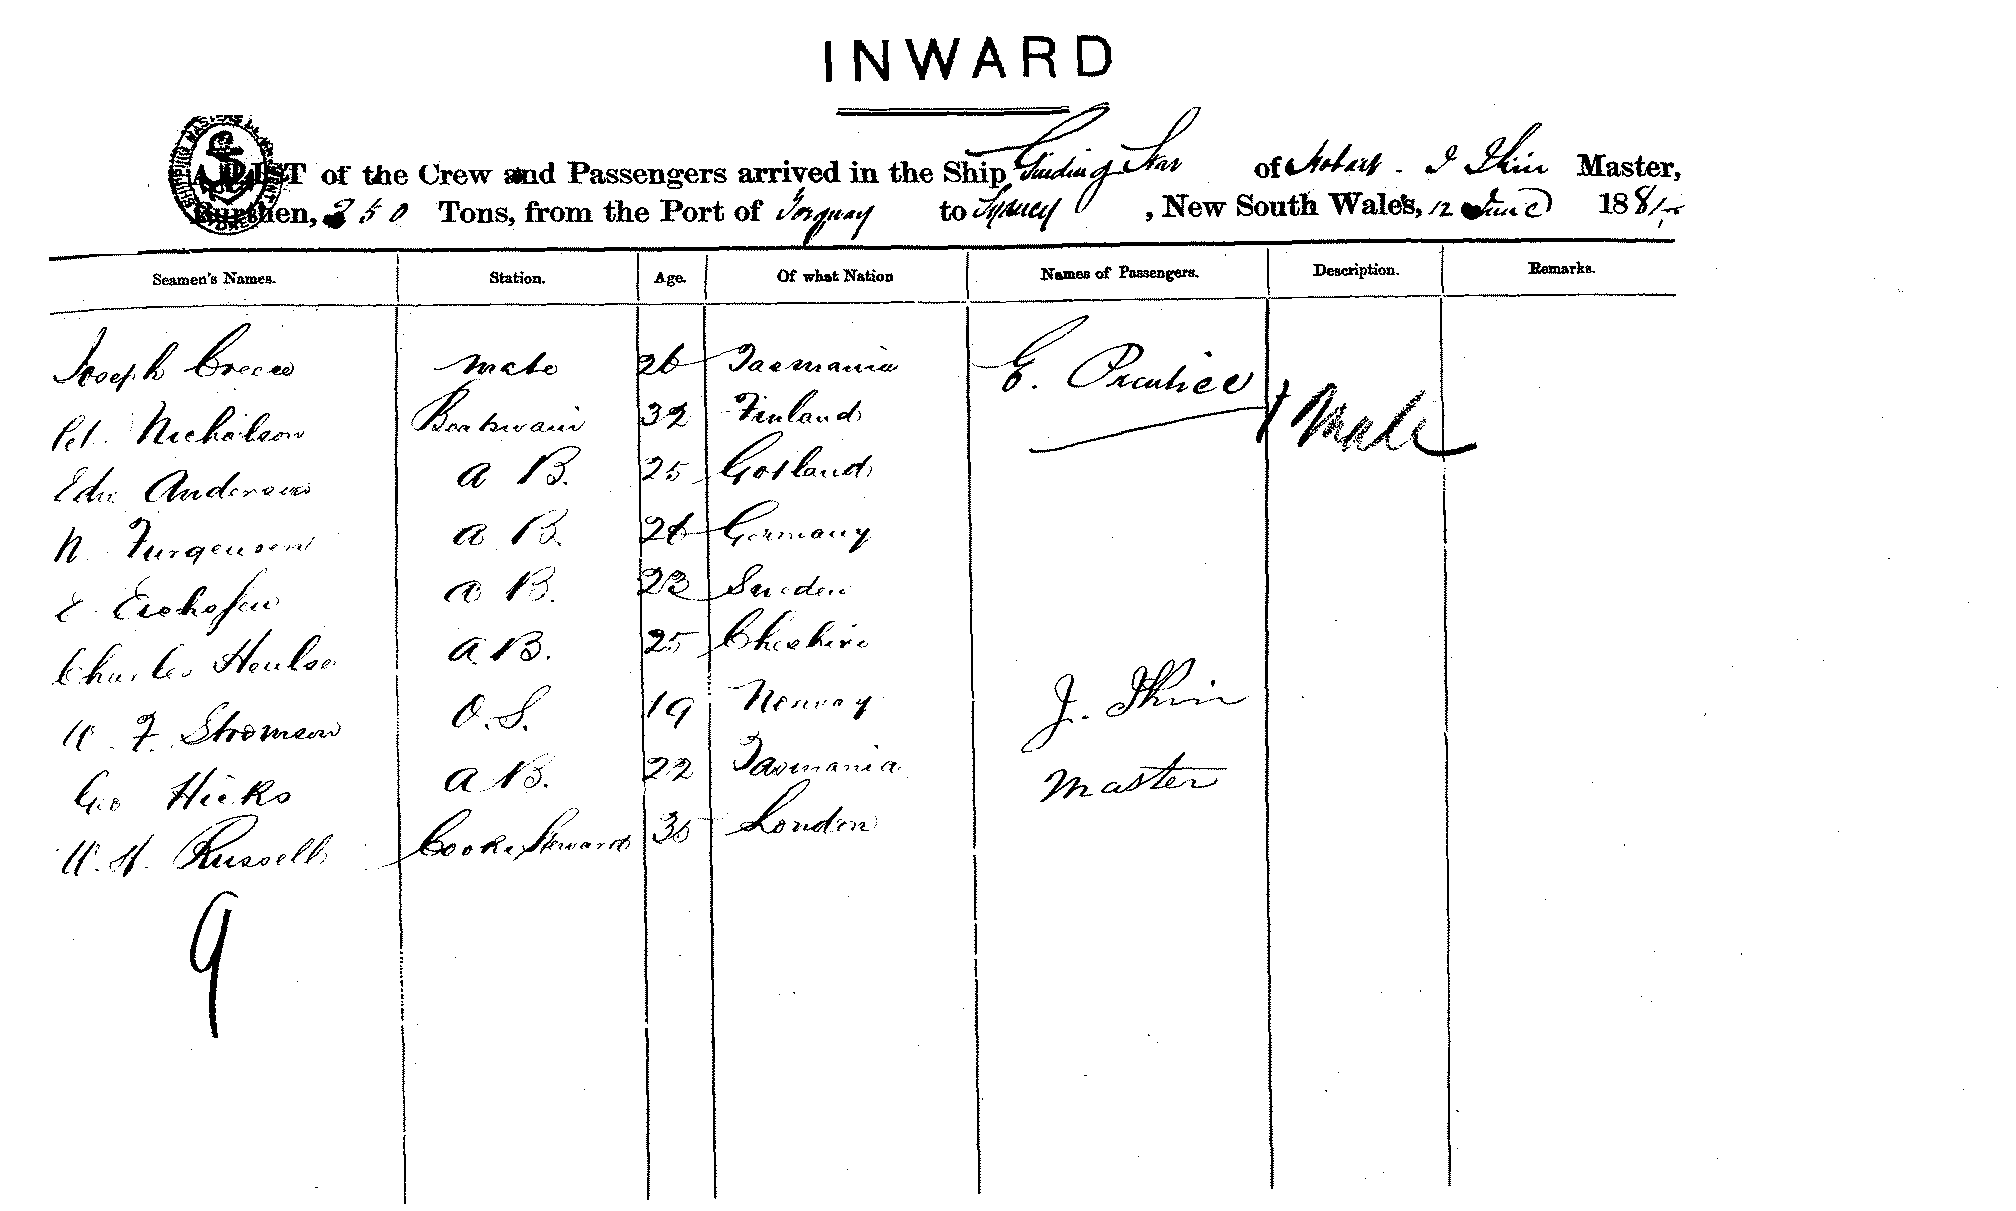 INWARD
A LIST of the Crew and Passengers arrived in the Ship Guiding Star of Hobart - J Ikin Master,
Burthen, 250 Tons, from the Port of Torquay to Sydney, New South Wales, 12 June 188
Seamen's Names. Station. Age. Of what Nation Names of Passengers. Description. Remarks.
Joseph mate 26 Tasmania E. Prentice
Pet. Nicholson Boatswain 32 Finland Male
Edw Anderson a B. 25 Gotland
N. Jurgensen a B. 26 Germany
E. a B. 23 Sweden
Charles Heulse a B. 25 Cheshire
W. F. Stromson O.S. 19 Norway J. Ikin
Geo Hicks a B. 22 Tasmania Master
W. H. Russell Cook & Steward 35 London
9